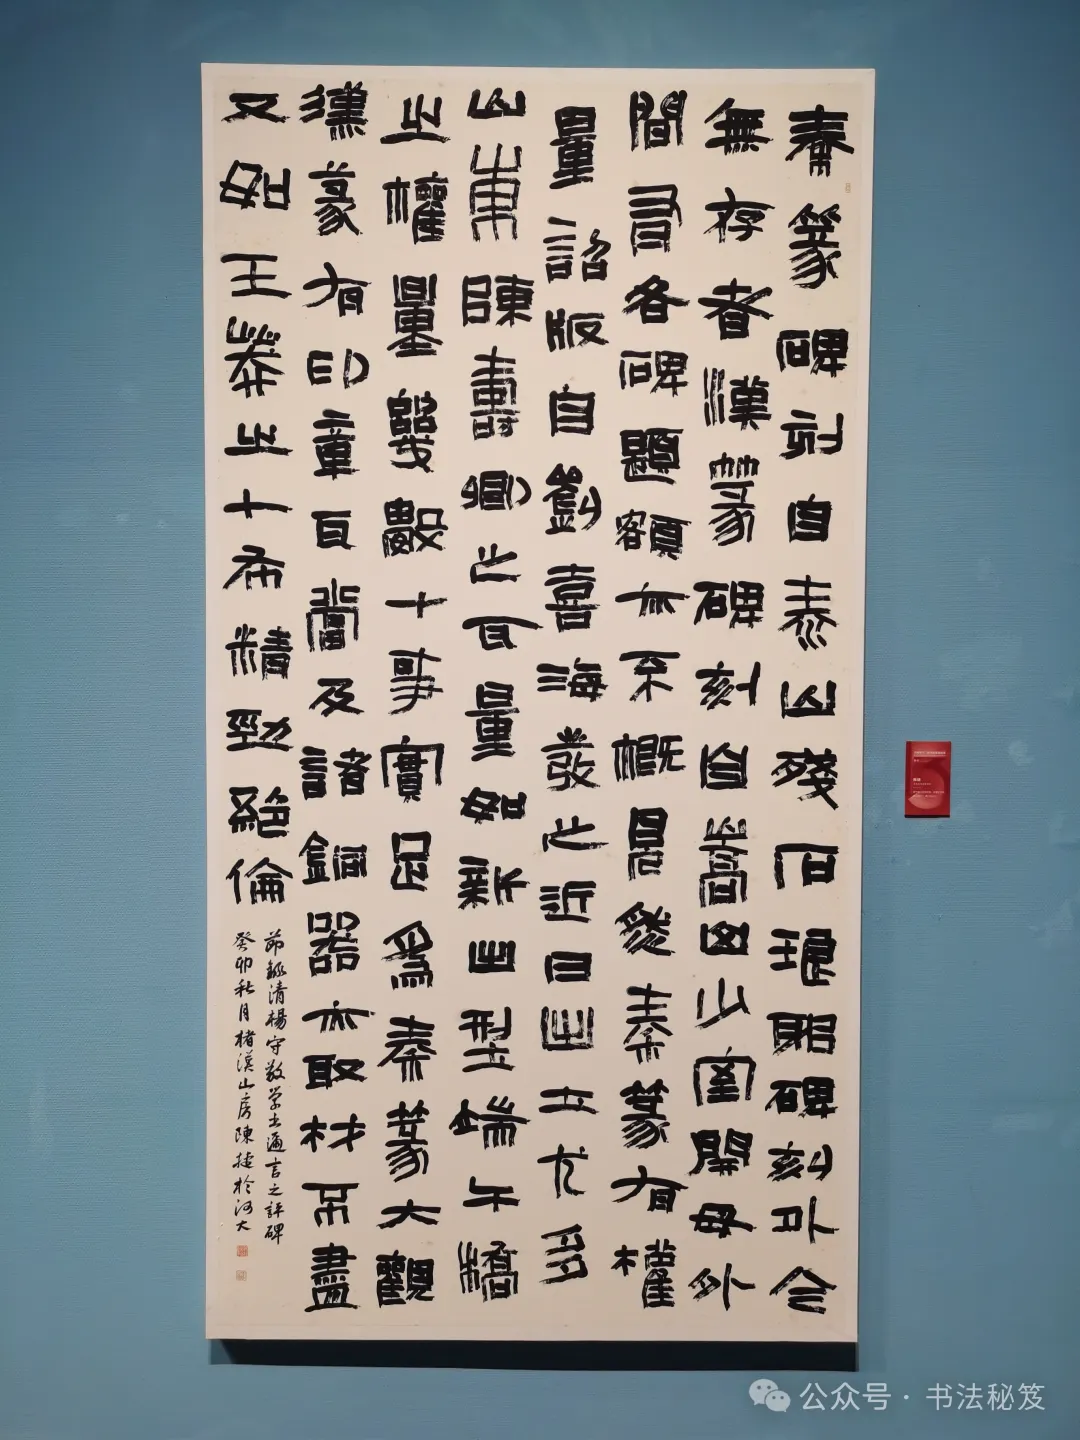 秦篆碑刻自泰山殘石琅邪碑刻外今
無存者漢篆碑刻自嵩山少室開母外
間有各碑題額亦不概見然秦篆有權
量詔版自劉喜海發之近日出土尤多
山東陳壽卿之瓦量如新出型端午橋
之權量幾數十事實足爲秦篆大觀
漢篆有印章瓦當及諸銅器亦取材不盡
又如王莽之十布精勁絕倫
節錄清楊守敬學書邇言之評碑
癸卯秋月楮漠山房陳捷於河大
公众号·书法秘笈